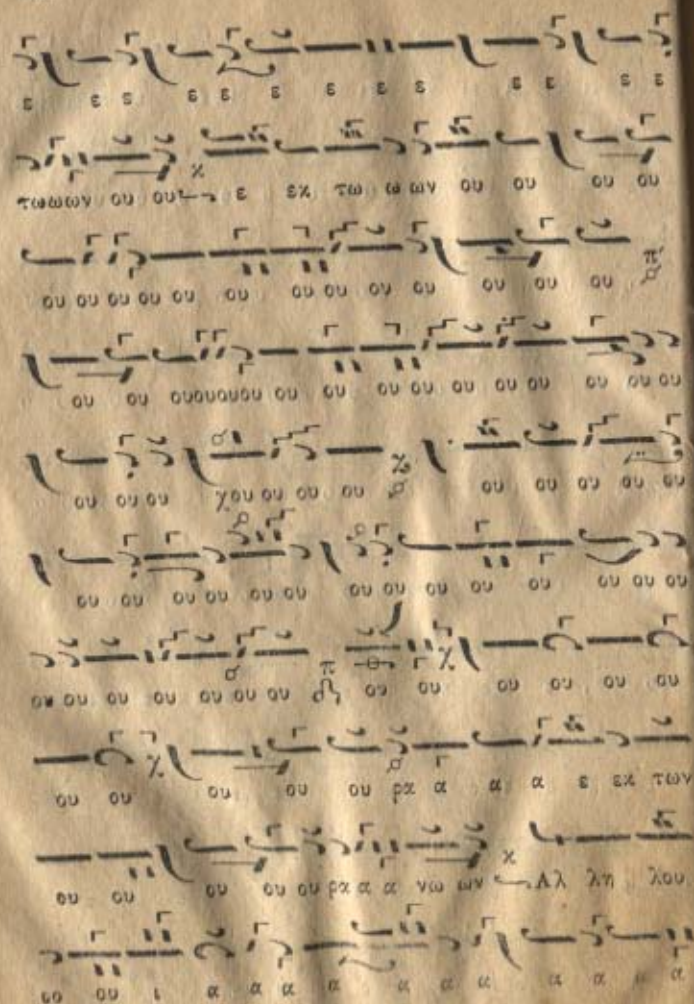 ε ε ε ε ε ε ε ε ε ε ε ε ε
τωωων ου ου ε εκ τω ω ων ου ου ου ου
ου ου ου ου ου ου ου ου ου ου ου ου ου π'
ου ου ουουουου ου ου ου ου ου ου ου ου ου ου
ου ου ου χου ου ου ου ου ου ου ου ου
ου ου ου ου ου ου ου ου ου ου ου ου ου ου
ου ου ου ου ου ου ου π ου ου ου ου ου ου
ου ου ου ου ου ρα α α α ε εκ των
ου ου ου ου ου ρα α α νω ων Αλ λη λου
ου ου ι α α α α α α α α α α α